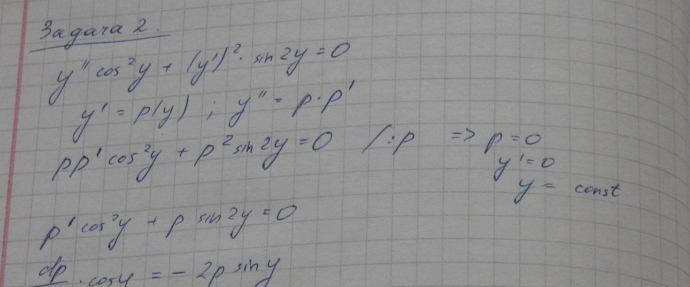 Задача 2.
y'' cos²y + (y')² · sin2y = 0
y' = p(y) ; y'' = p · p'
pp' cos²y + p² sin2y = 0 /:p => p = 0
y' = 0
y = const
p' cos²y + p sin2y = 0
dp · cosy = - 2p siny